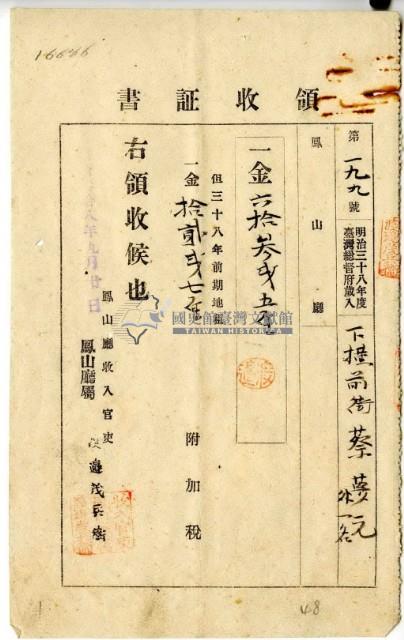 16636
領收証書
第一九九號
明治三十八年度
臺灣總督府歲入
下横前街 蔡夢元
外一名
鳳山廳
一金六拾參戔五厘
但三十八年前期地租
一金拾貳戔七厘
附加稅
右領收候也
八年九月廿日
鳳山廳收入官吏
鳳山廳屬
渡邊茂兵衛
國史館臺灣文獻館
TAIWAN HISTORICA
48